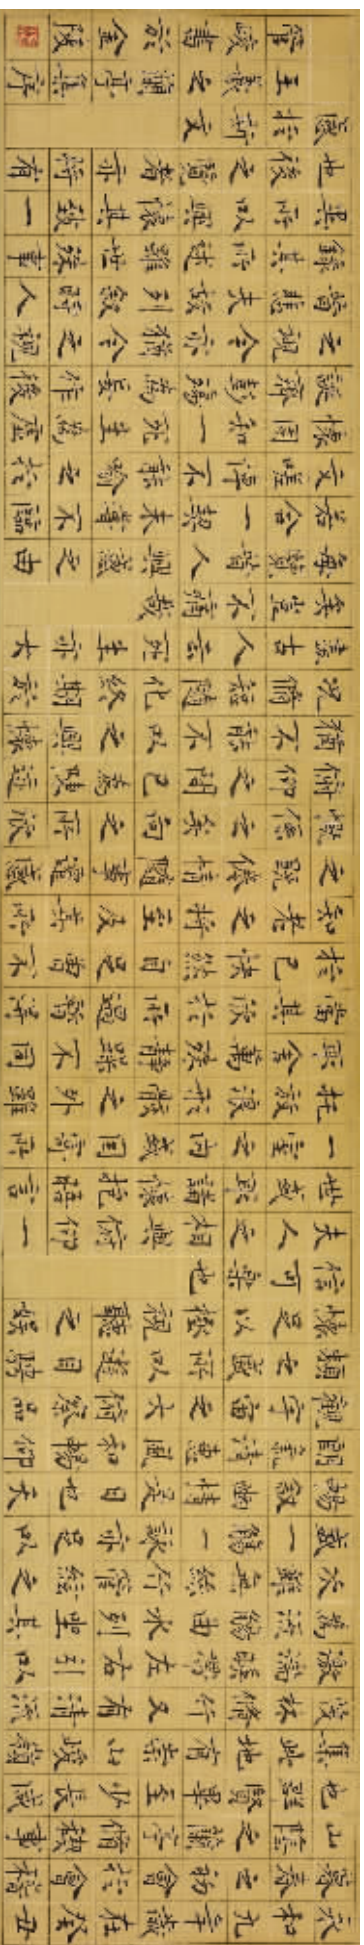 永和九年歲在癸丑
暮春之初會於會稽
山陰之蘭亭脩禊事
也群賢畢至少長咸
集此地有崇山峻領
茂林脩竹又有清流
激湍映帶左右引以
為流觴曲水列坐其
次雖無絲竹管絃之
盛一觴一詠亦足以
暢敘幽情是日也天
朗氣清惠風和暢仰
觀宇宙之大俯察品
類之盛所以遊目騁
懷足以極視聽之娛
信可樂也
夫人之相與俯仰一
世或取諸懷抱悟言
一室之內或因寄所
託放浪形骸之外雖
取舍萬殊靜躁不同
當其欣於所遇暫得
於己快然自足曾不
知老之將至及其所
之既倦情隨事遷感
慨係之矣向之所欣
俛仰之間已為陳迹
猶不能不以之興懷
況脩短隨化終期於
盡古人云死生亦大
矣豈不痛哉
每覽昔人興感之由
若合一契未嘗不臨
文嗟悼不能喻之於
懷固知一死生為虛
誕齊彭殤為妄作後
之視今亦猶今之視
昔悲夫故列敘時人
錄其所述雖世殊事
異所以興懷其致一
也後之覽者亦將有
感於斯文
王羲之蘭亭集序
管峻書於金陵